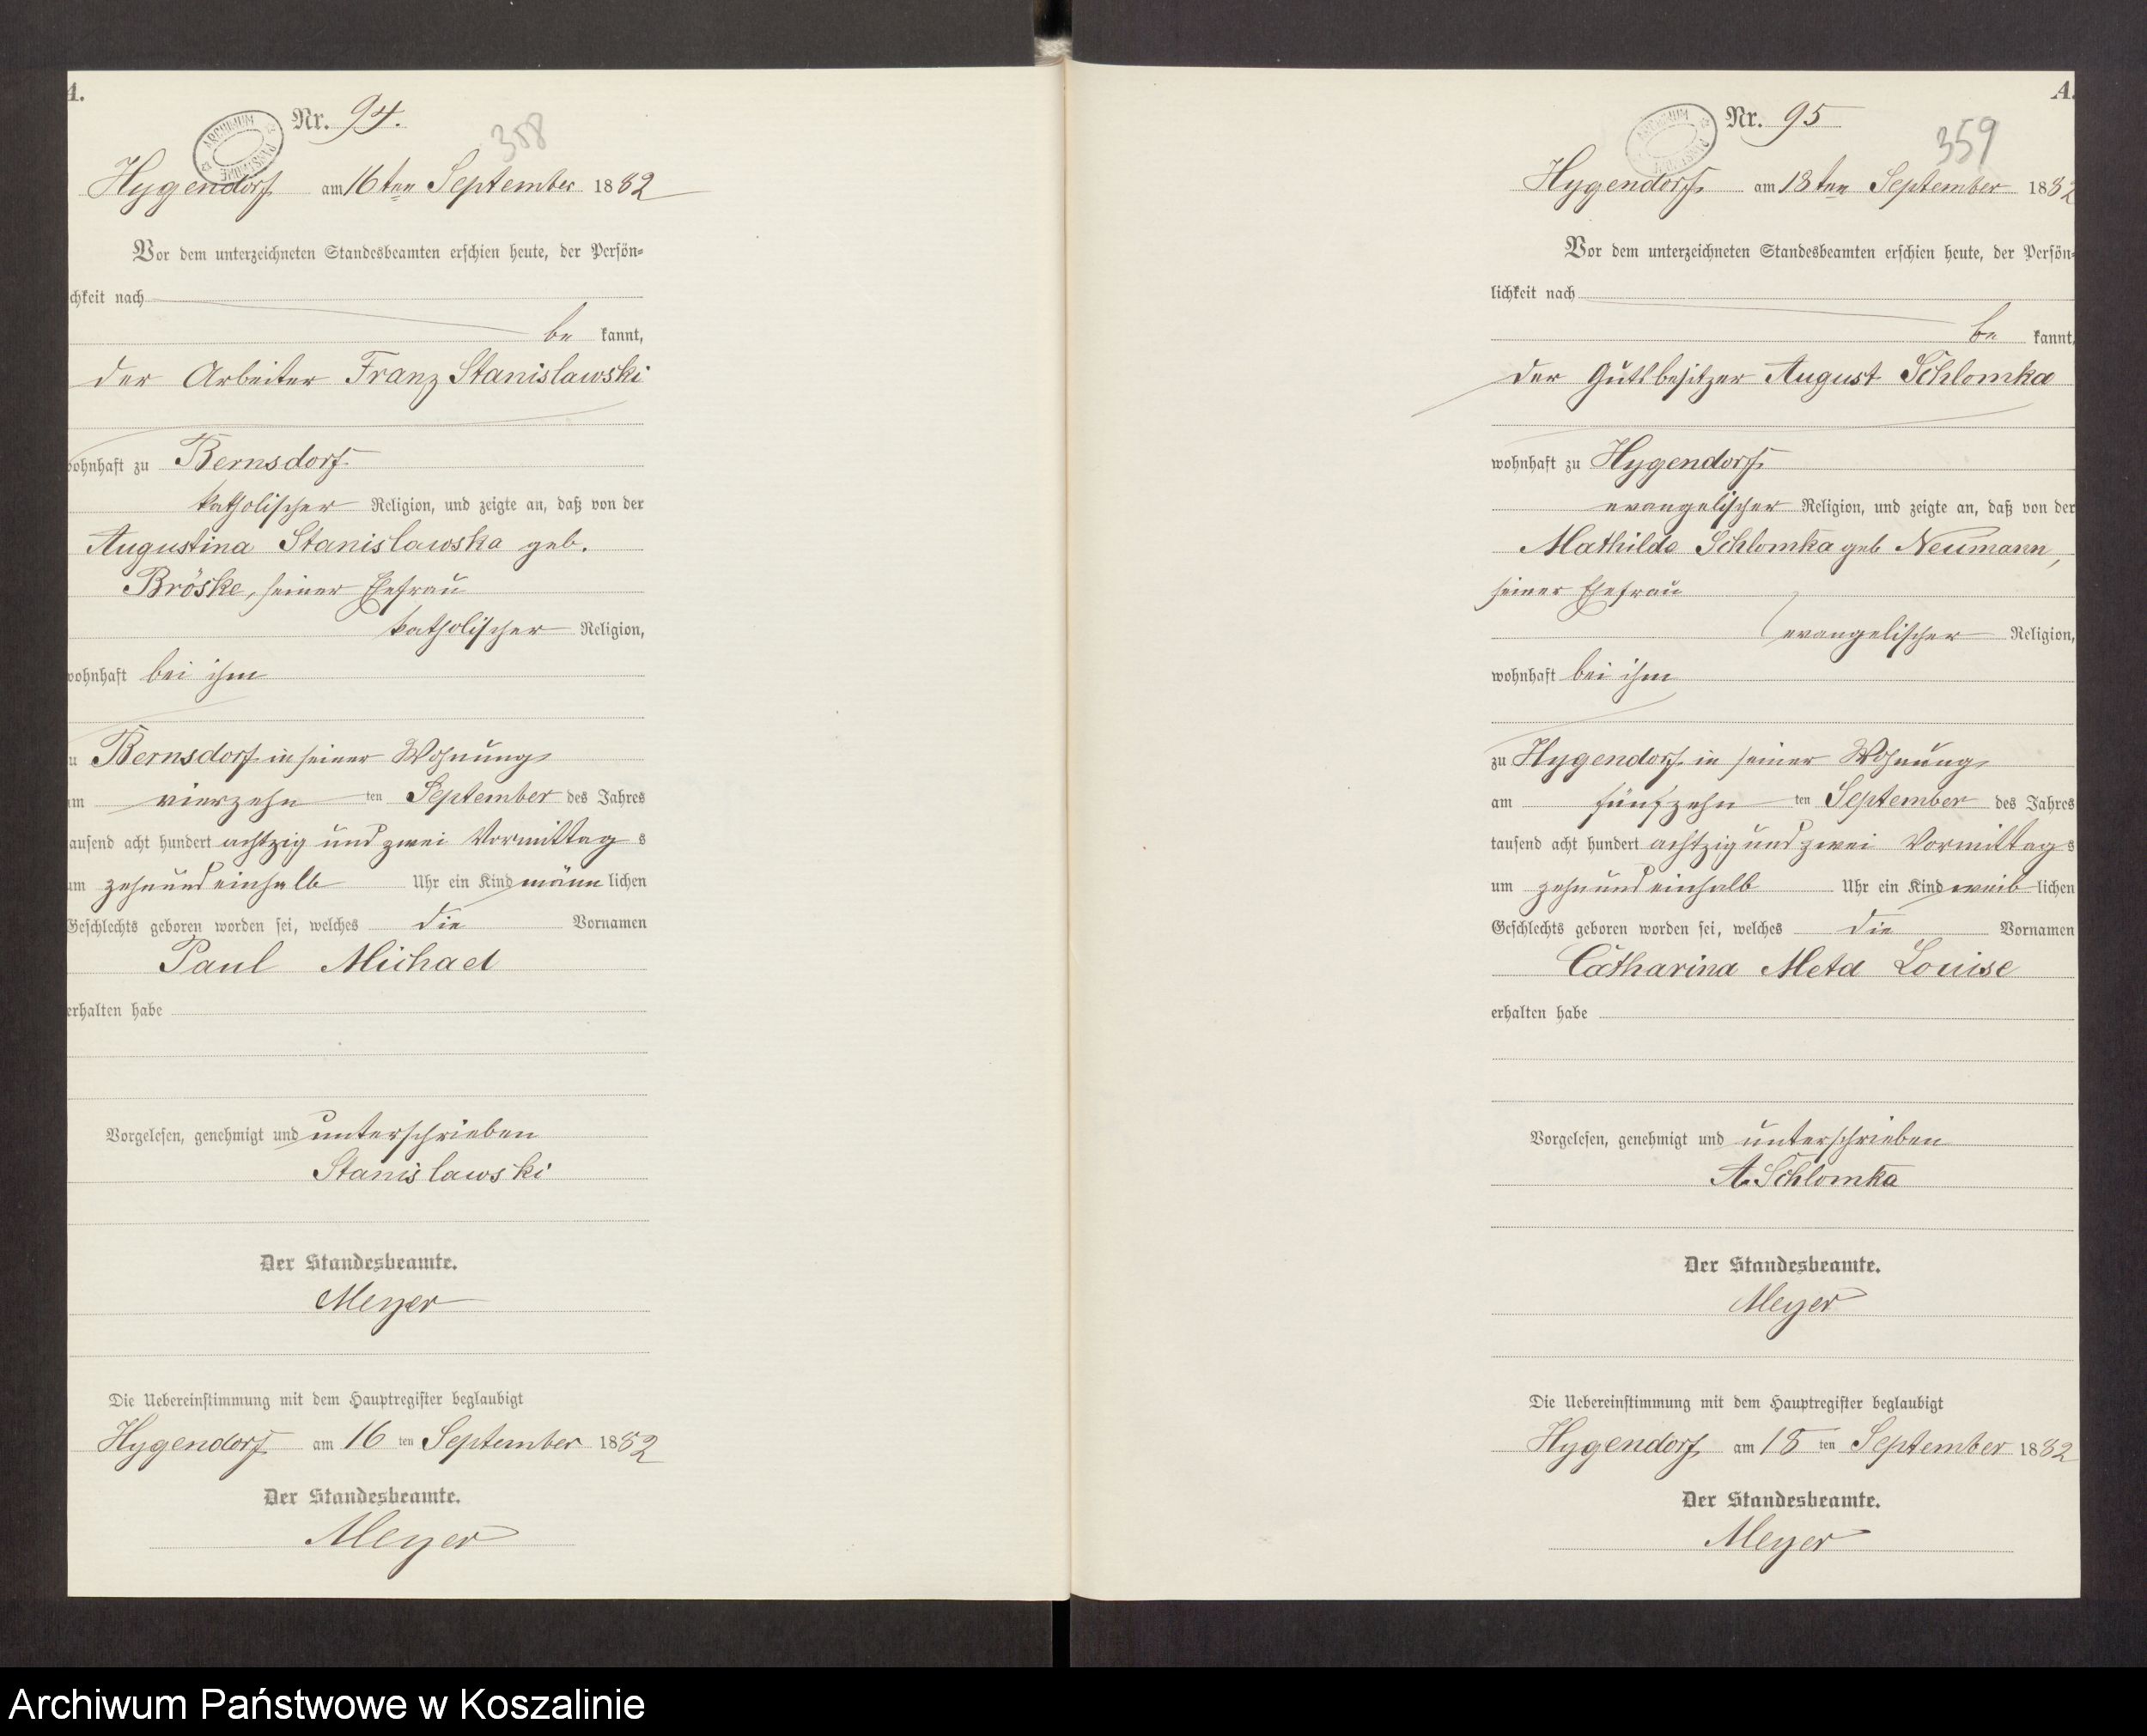 A.
Nr. 94.
358
ARCHIWUM PAŃSTWOWE
Hygendorf am 16ten September 1882
Vor dem unterzeichneten Standesbeamten erschien heute, der Persön-
chkeit nach
be kannt,
der Arbeiter Franz Stanislawski
wohnhaft zu Bernsdorf
katholischer Religion, und zeigte an, daß von der
Augustina Stanislawska geb.
Bröske, seiner Ehefrau
katholischer Religion,
wohnhaft bei ihm
zu Bernsdorf in seiner Wohnung
am vierzehn ten September des Jahres
tausend acht hundert achtzig und zwei Vormittag s
um zehn und einhalb Uhr ein Kind männ lichen
Geschlechts geboren worden sei, welches die Vornamen
Paul Michael
erhalten habe
Vorgelesen, genehmigt und unterschrieben
Stanislawski
Der Standesbeamte.
Meyer
Die Uebereinstimmung mit dem Hauptregister beglaubigt
Hygendorf am 16 ten September 1882
Der Standesbeamte.
Meyer
A.
Nr. 95
359
ARCHIWUM PAŃSTWOWE
Hygendorf am 18ten September 1882
Vor dem unterzeichneten Standesbeamten erschien heute, der Persön-
lichkeit nach
be kannt,
der Gutsbesitzer August Schlomka
wohnhaft zu Hygendorf
evangelischer Religion, und zeigte an, daß von der
Mathilde Schlomka geb Neumann,
seiner Ehefrau
evangelischer Religion,
wohnhaft bei ihm
zu Hygendorf in seiner Wohnung
am fünfzehn ten September des Jahres
tausend acht hundert achtzig und zwei Vormittag s
um zehn und einhalb Uhr ein Kind weib lichen
Geschlechts geboren worden sei, welches die Vornamen
Catharina Meta Louise
erhalten habe
Vorgelesen, genehmigt und unterschrieben
A. Schlomka
Der Standesbeamte.
Meyer
Die Uebereinstimmung mit dem Hauptregister beglaubigt
Hygendorf am 18 ten September 1882
Der Standesbeamte.
Meyer
Archiwum Państwowe w Koszalinie